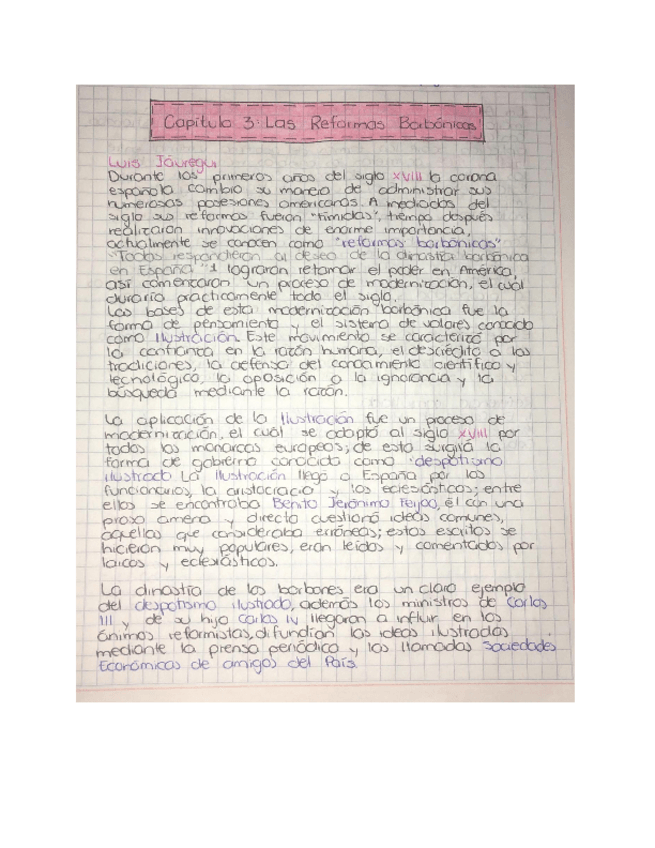 Capítulo 3: Las Reformas Borbónicas
Luis Jáuregui
Durante los primeros años del siglo XVIII la corona
española cambio su manera de administrar sus
numerosas posesiones americanas. A mediados del
siglo sus reformas fueron "tímidas", tiempo después
realizaron innovaciones de enorme importancia,
actualmente se conocen como "reformas borbónicas"
"Todas respondieron al deseo de la dinastía borbónica
en España" 1 lograron retomar el poder en América,
así comenzaron un proceso de modernización, el cual
duraría practicamente todo el siglo.
Las bases de esta modernización borbónica fue la
forma de pensamiento y el sistema de valores conocido
como Ilustración. Este movimiento se caracterizó por
la confianza en la razón humana, el descrédito a las
tradiciones, la defensa del conocimiento científico y
tecnológico, la oposición a la ignorancia y la
búsqueda mediante la razón.
La aplicación de la Ilustración fue un proceso de
modernización, el cuál se adoptó al siglo XVIII por
todos los monarcas europeos; de esta surgirá la
forma de gobierno conocida como "despotismo
ilustrado La Ilustración llegó a España por los
funcionarios, la aristocracia y los eclesiásticos; entre
ellos se encontraba Benito Jerónimo Feijoo, él con una
prosa amena y directa cuestionó ideas comunes,
aquellas que consideraba erróneas; estos escritos se
hicieron muy populares, eran leídos y comentados por
laicos y eclesiásticos.
La dinastía de los borbones era un claro ejemplo
del despotismo ilustrado, además los ministros de Carlos
III y de su hijo Carlos IV llegaron a influir en los
ánimos reformistas, difundían las ideas ilustradas
mediante la prensa periódica y las llamadas Sociedades
Económicas de amigos del País.